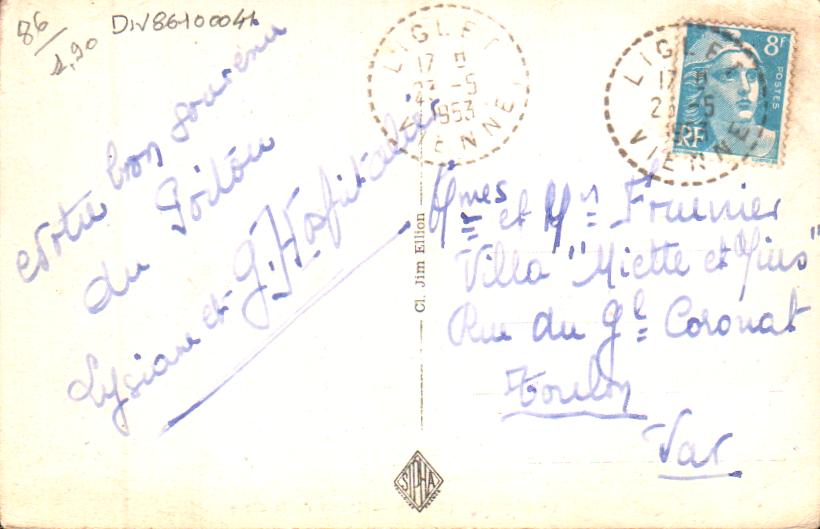 86/1,20
DIV86100041
Notre bon souvenir
du Poitou
Lysiane et G. Hospitalier
LIGLET
17 H
23 -5
1953
VIENNE
LIGLET
17 H
23 -5
1953
VIENNE
8F
POSTES
RF
Cl. Jim Ellion
Mmes et Mr Fournier
Villa "Miette et Nius"
Rue du Gl Coronat
Toulon
Var
SIPHA